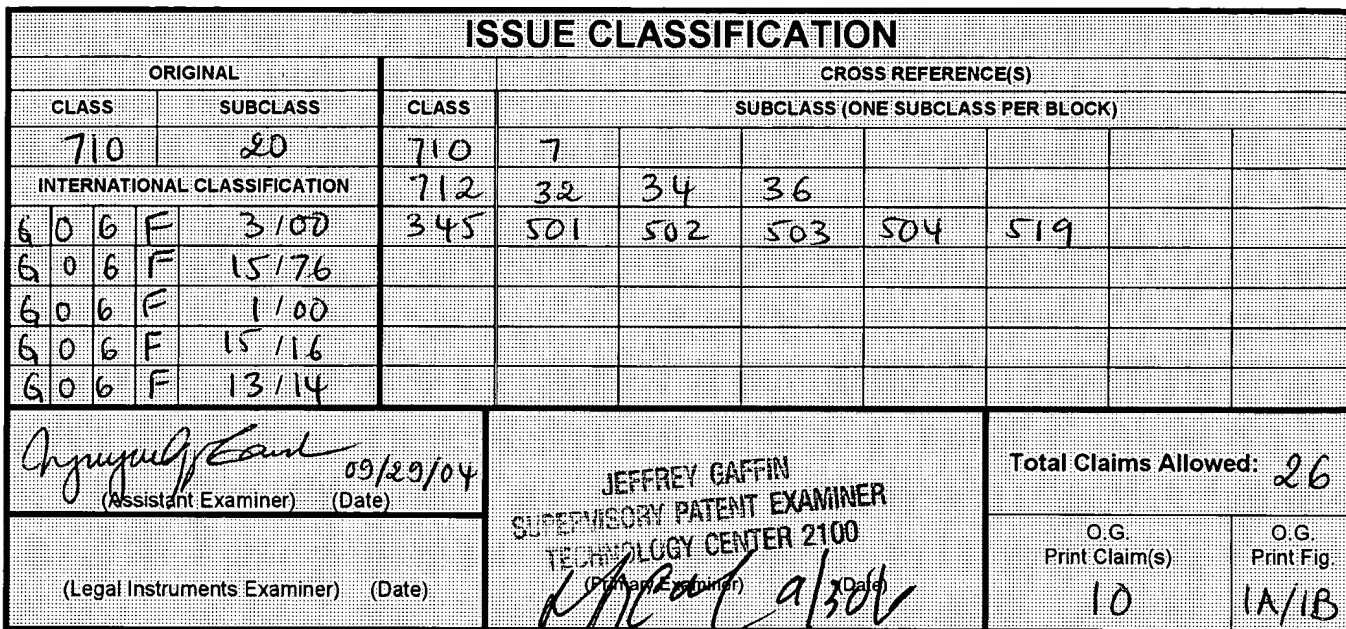 ISSUE CLASSIFICATION
ORIGINAL CROSS REFERENCE(S)
CLASS SUBCLASS CLASS SUBCLASS (ONE SUBCLASS PER BLOCK)
710 20 710 7
INTERNATIONAL CLASSIFICATION 712 32 34 36
G 0 6 F 3/00 345 501 502 503 504 519
G 0 6 F 15/76
G 0 6 F 1/00
G 0 6 F 15/16
G 0 6 F 13/14
09/29/04
(Assistant Examiner) (Date)
(Legal Instruments Examiner) (Date)
JEFFREY GAFFIN
SUPERVISORY PATENT EXAMINER
TECHNOLOGY CENTER 2100
(Primary Examiner) (Date)
Total Claims Allowed: 26
O.G. Print Claim(s) O.G. Print Fig.
10 1A/1B